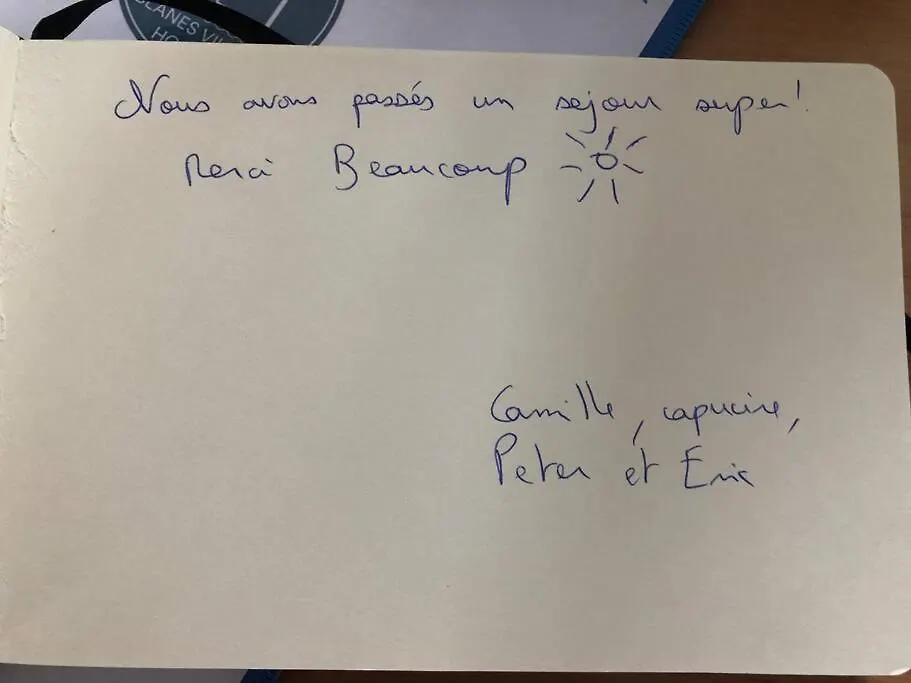 LANES VI
HO
Nous avons passés un sejour super!
Merci Beaucoup
Camille, capucine,
Peter et Eric